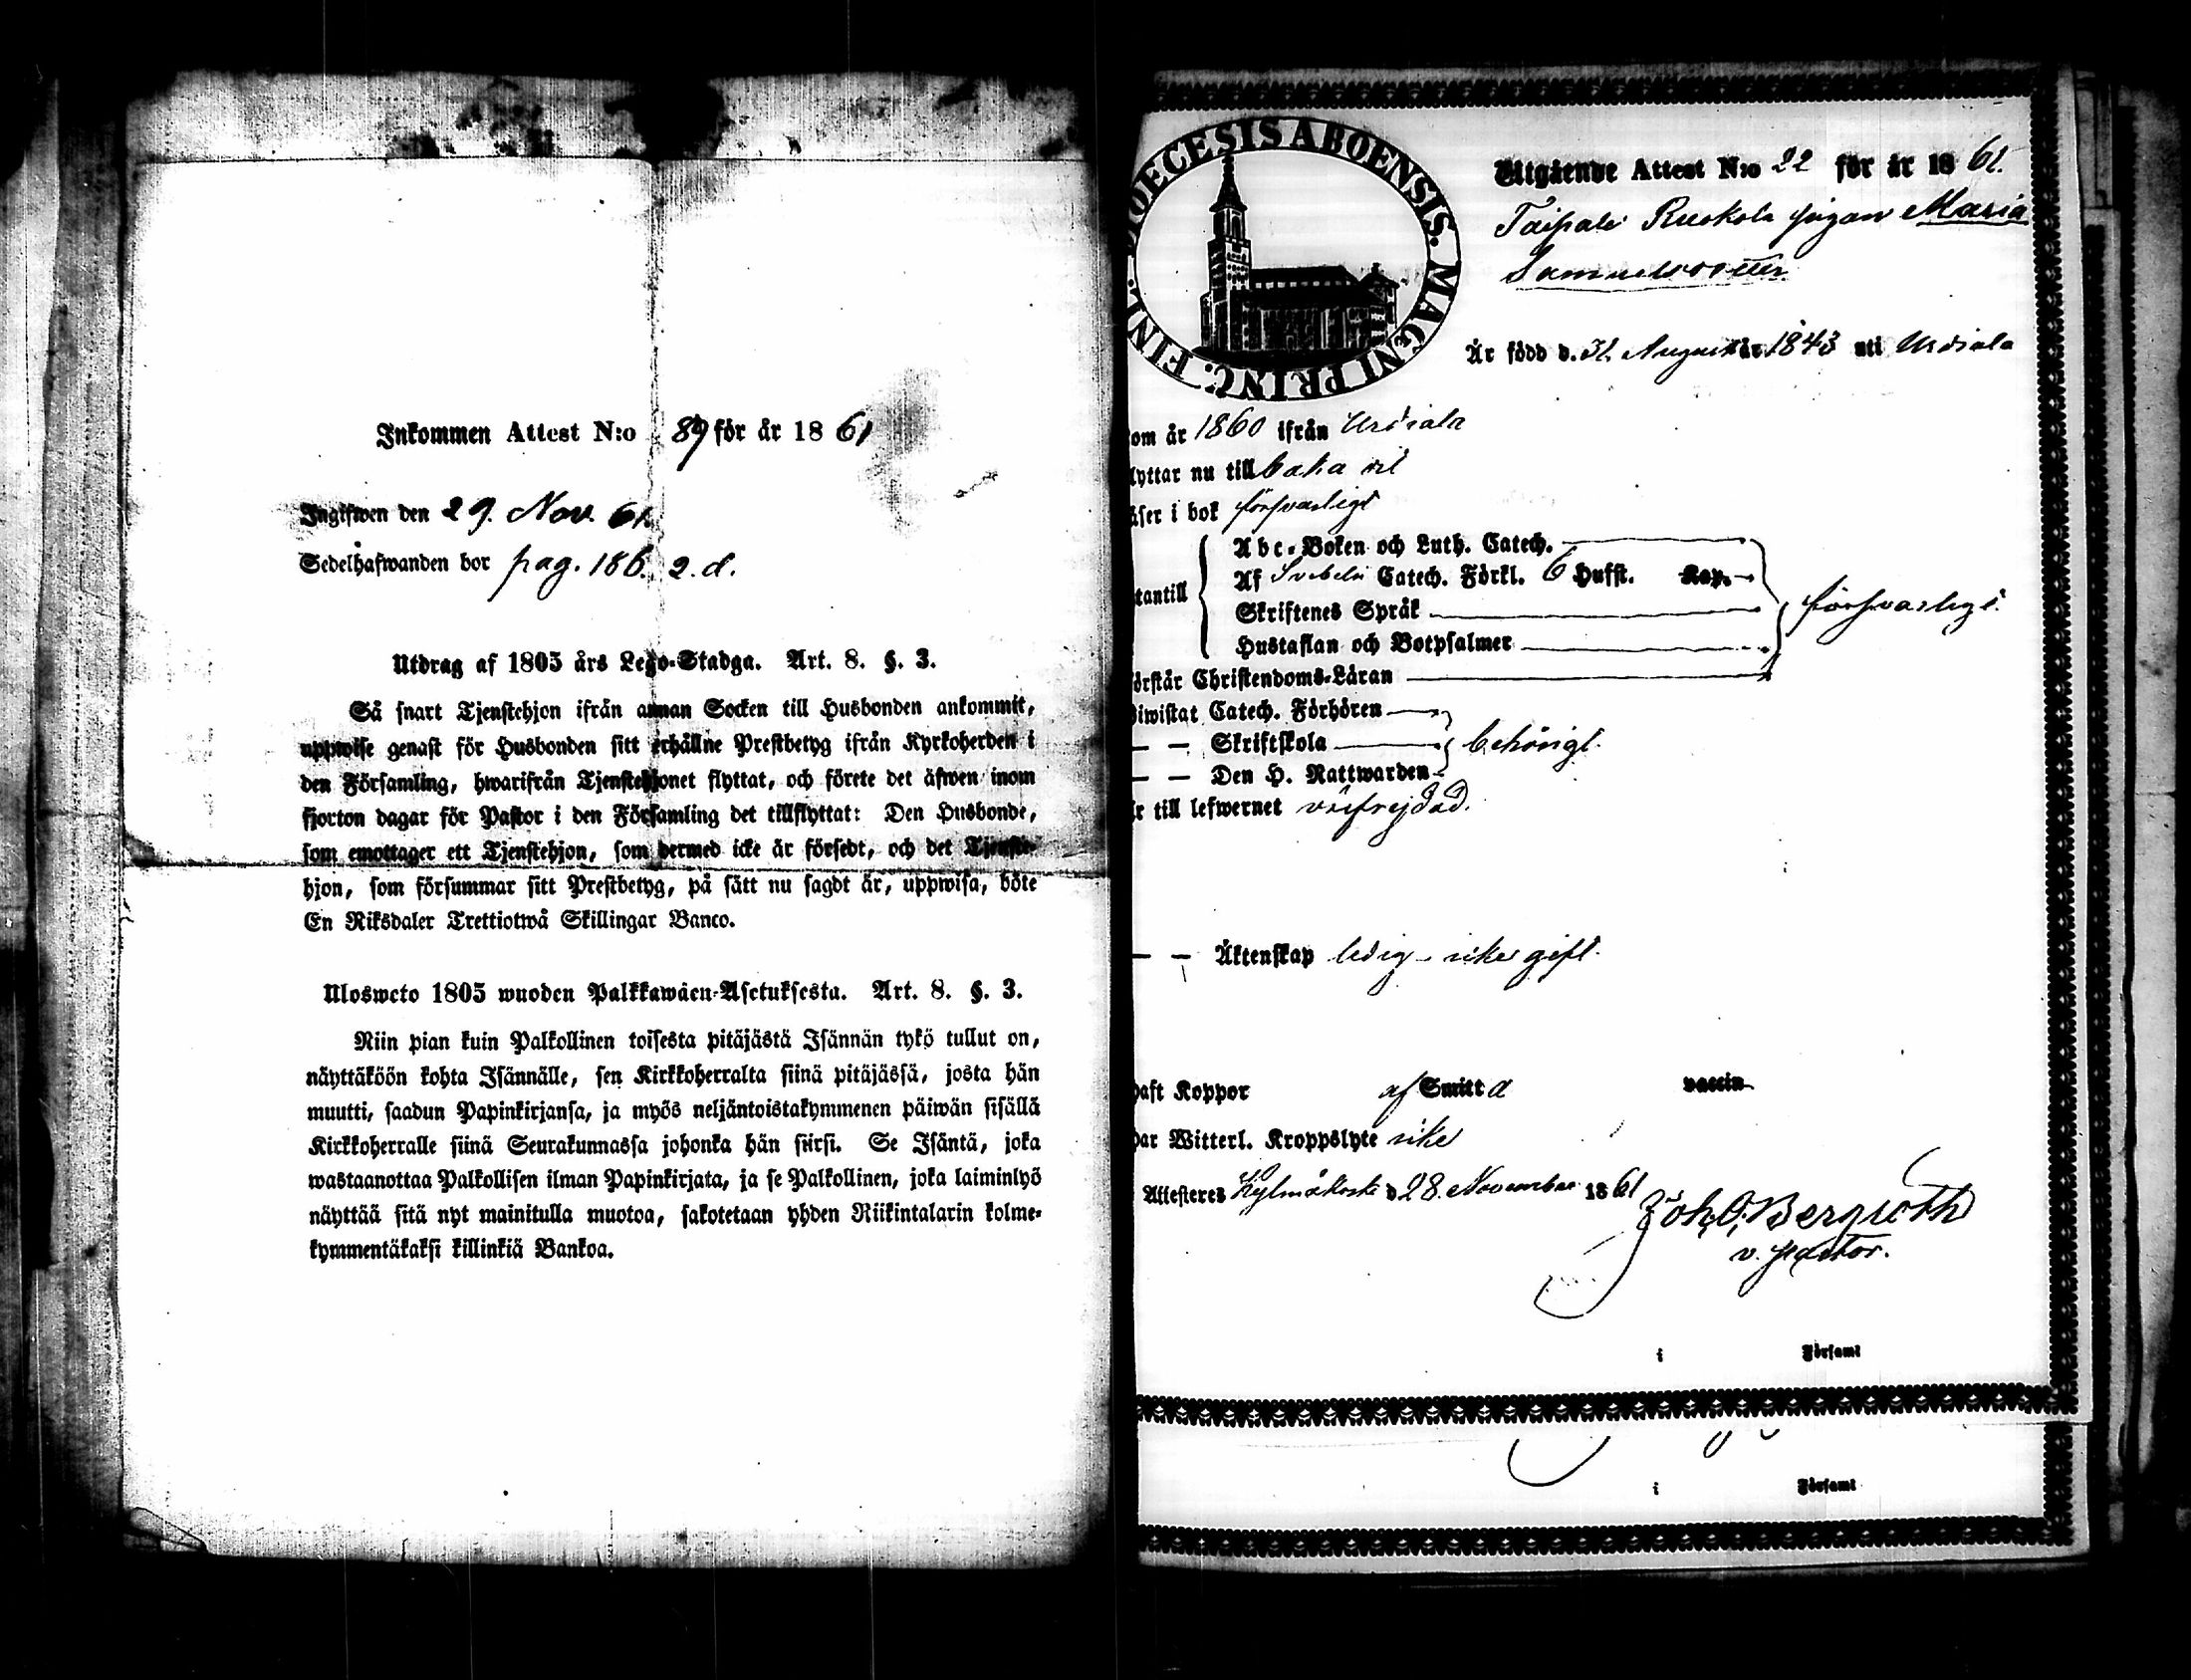 Inkommen Attest N:o 89 för år 1861
Ingifwen den 29. Nov. 61.
Sedelhafwanden bor pag. 186. 2. d.
Utdrag af 1805 års Lego-Stadga. Art. 8. §. 3.
Så snart Tjenstehjon ifrån annan Socken till Husbonden ankommit,
uppwise genast för Husbonden sitt erhållne Prestbetyg ifrån Kyrkoherden i
den Församling, hwarifrån Tjenstehjonet flyttat, och förete det äfwen inom
fjorton dagar för Pastor i den Församling det tillflyttat: Den Husbonde,
som emottager ett Tjenstehjon, som dermed icke är försedt, och det Tjenste-
hjon, som försummar sitt Prestbetyg, på sätt nu sagdt är, uppwisa, böte
En Riksdaler Trettiotwå Skillingar Banco.
Ulosweto 1805 wuoden Palkkawäen-Asetuksesta. Art. 8. §. 3.
Niin pian kuin Palkollinen toisesta pitäjästä Isännän tykö tullut on,
näyttäköön kohta Isännälle, sen Kirkkoherralta siinä pitäjässä, josta hän
muutti, saadun Papinkirjansa, ja myös neljäntoistakymmenen päiwän sisällä
Kirkkoherralle siinä Seurakunnassa johonka hän siirsi. Se Isäntä, joka
wastaanottaa Palkollisen ilman Papinkirjata, ja se Palkollinen, joka laiminlyö
näyttää sitä nyt mainitulla muotoa, sakotetaan yhden Riikintalarin kolme-
kymmentäkaksi killinkiä Bankoa.
DIOECESIS ABOENSIS. MAGNI PRINC. FINL.
Utgående Attest N:o 22 för år 1861.
Taipale Ruokola pigan Maria
Samuelsdotter
Är född d. 31. August år 1843 uti Urdiala
om år 1860 ifrån Urdiala
lyttar nu tillbaka dit
äser i bok försvarligt
tantill
Abc-Boken och Luth. Catech.
Af Svebelii Catech. Förkl. 6 Hufst. Kap.
Skriftenes Språk
Hustaflan och Botpsalmer
försvarligt.
örstår Christendoms-Läran
iwistat Catech. Förhören
— — Skriftskola
behörigt.
— — Den H. Nattwarden
r till lefwernet oxefrejdad.
— — Äktenskap ledig - icke gift.
haft Koppor af Smitta vaccin
har Witterl. Kroppslyte icke
Attesteres Kylmäkoski d 28. November 1861
Joh. O. Bergroth
v. pastor.
i Församl
i Församl